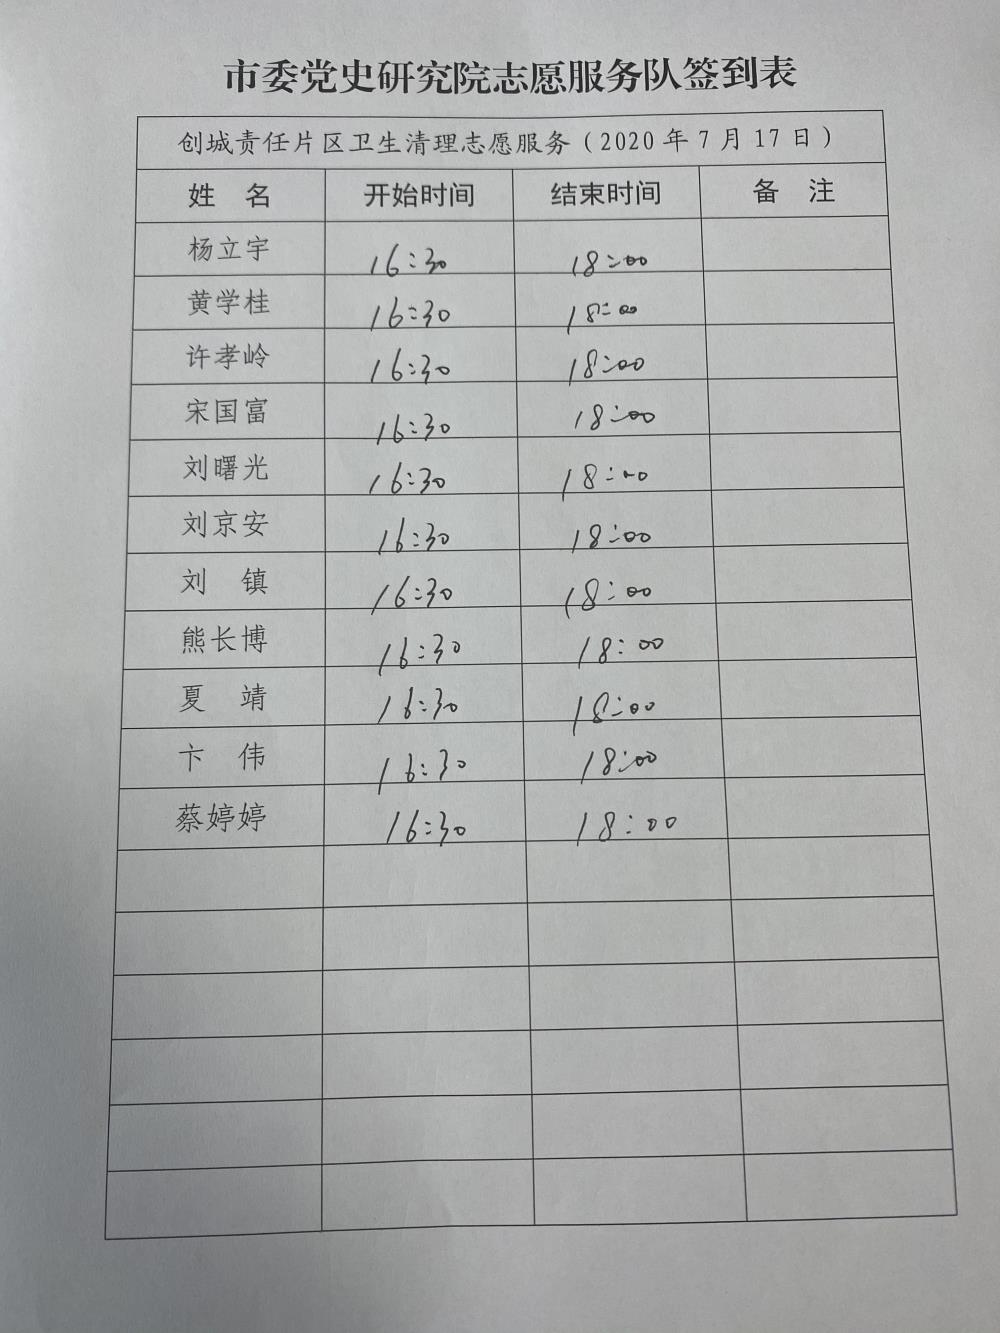 市委党史研究院志愿服务队签到表
创城责任片区卫生清理志愿服务（2020 年 7 月 17 日）
姓 名 开始时间 结束时间 备 注
杨立宇 16:30 18:00
黄学桂 16:30 18:00
许孝岭 16:30 18:00
宋国富 16:30 18:00
刘曙光 16:30 18:00
刘京安 16:30 18:00
刘 镇 16:30 18:00
熊长博 16:30 18:00
夏 靖 16:30 18:00
卞 伟 16:30 18:00
蔡婷婷 16:30 18:00